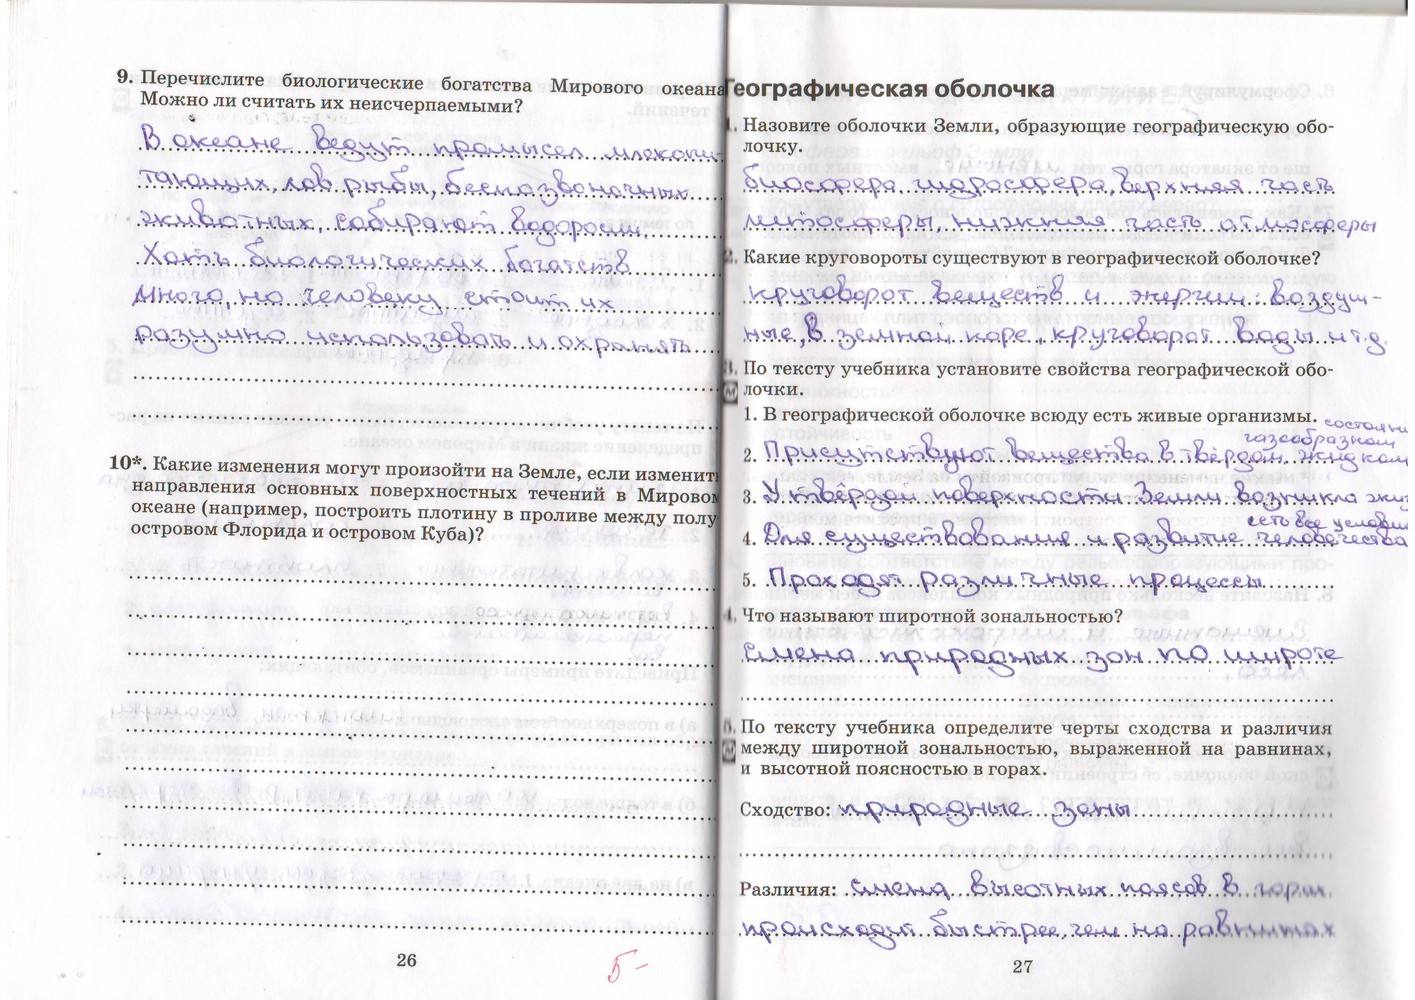 9. Перечислите биологические богатства Мирового океана
Можно ли считать их неисчерпаемыми?
В океане ведут промысел млекопи-
тающих, лов рыбы, беспозвоночных
животных, собирают водоросли.
Хоть биологических богатств
много, но человеку стоит их
разумно использовать и охранять
10*. Какие изменения могут произойти на Земле, если изменить
направления основных поверхностных течений в Мировом
океане (например, построить плотину в проливе между полу-
островом Флорида и островом Куба)?
26
5-
Географическая оболочка
1. Назовите оболочки Земли, образующие географическую обо-
лочку.
биосфера, гидросфера, верхняя часть
литосферы, нижняя часть атмосферы
2. Какие круговороты существуют в географической оболочке?
круговорот веществ и энергии: воздуш-
ные, в земной коре, круговорот воды и т.д.
3. По тексту учебника установите свойства географической обо-
лочки.
1. В географической оболочке всюду есть живые организмы.
2. Присутствуют вещества в твёрдом, жидком
газообразном
состояни
3. У твердой поверхности Земли возникла жиз
4. Для существования и развитие человечества
есть все услови
5. Проходят различные процессы
4. Что называют широтной зональностью?
Смена природных зон по широте
5. По тексту учебника определите черты сходства и различия
между широтной зональностью, выраженной на равнинах,
и высотной поясностью в горах.
Сходство: природные зоны
Различия: смена высотных поясов в горах
происходит быстрее, чем на равнинах
27